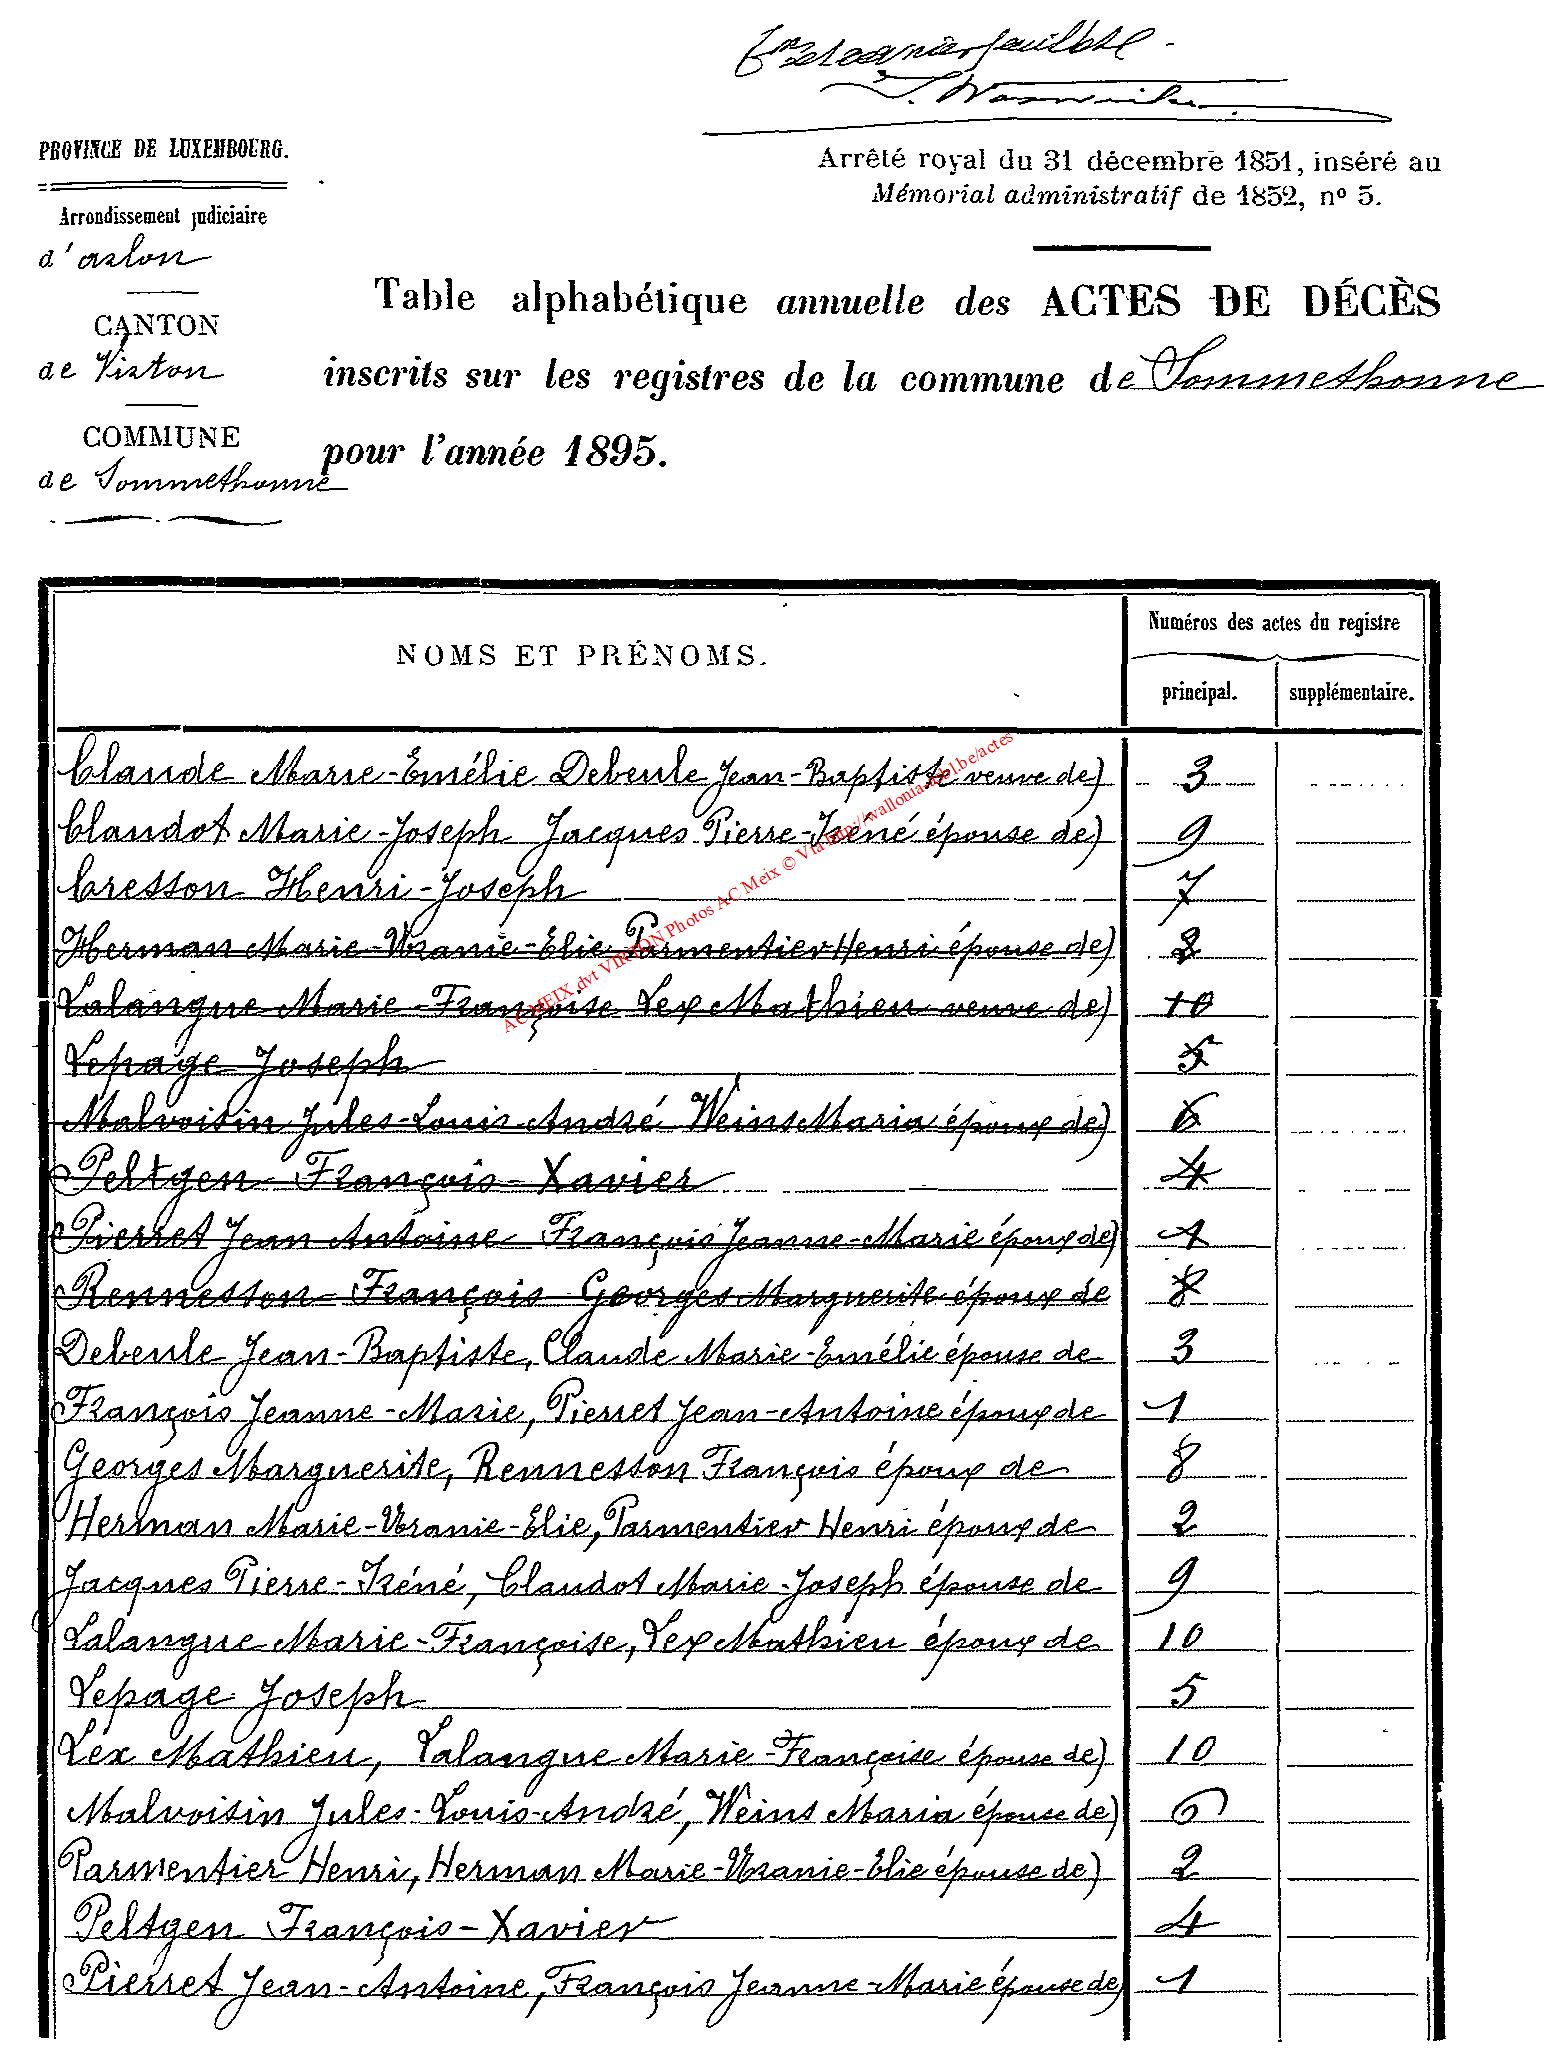 PROVINCE DE LUXEMBOURG.
Arrondissement judiciaire
d'arlon
CANTON
de Virton
COMMUNE
de Sommethonne
Arrêté royal du 31 décembre 1851, inséré au
Mémorial administratif de 1852, nº 5.
Table alphabétique annuelle des ACTES DE DÉCÈS
inscrits sur les registres de la commune de Sommethonne
pour l'année 1895.
NOMS ET PRÉNOMS.
Numéros des actes du registre
principal. supplémentaire.
Claude Marie-Emélie Debeule Jean-Baptiste veuve de) 3
Claudot Marie-Joseph Jacques Pierre-Iréné épouse de) 9
Cresson Henri-Joseph 7
Herman Marie-Uranie-Elie Parmentier Henri épouse de) 2
Lalangue Marie-Françoise Lex Mathieu veuve de) 10
Lepage Joseph 5
Malvoisin Jules-Louis-André Weins Maria époux de) 6
Peltgen François-Xavier 4
Pierret Jean Antoine François Jeanne-Marie époux de) 1
Rennesson François Georges Marguerite époux de 8
Debeule Jean-Baptiste, Claude Marie-Emélie épouse de 3
François Jeanne-Marie, Pierret Jean-Antoine époux de 1
Georges Marguerite, Rennesson François époux de 8
Herman Marie-Uranie-Elie, Parmentier Henri époux de 2
Jacques Pierre-Iréné, Claudot Marie-Joseph épouse de 9
Lalangue Marie-Françoise, Lex Mathieu époux de 10
Lepage Joseph 5
Lex Mathieu, Lalangue Marie-Françoise épouse de) 10
Malvoisin Jules-Louis-André, Weins Maria épouse de) 6
Parmentier Henri, Herman Marie-Uranie-Elie épouse de) 2
Peltgen François-Xavier 4
Pierret Jean-Antoine, François Jeanne-Marie épouse de) 1
AC MEIX dvt VIRTON Photos AC Meix © Via http://wallonia-asbl.be/actes